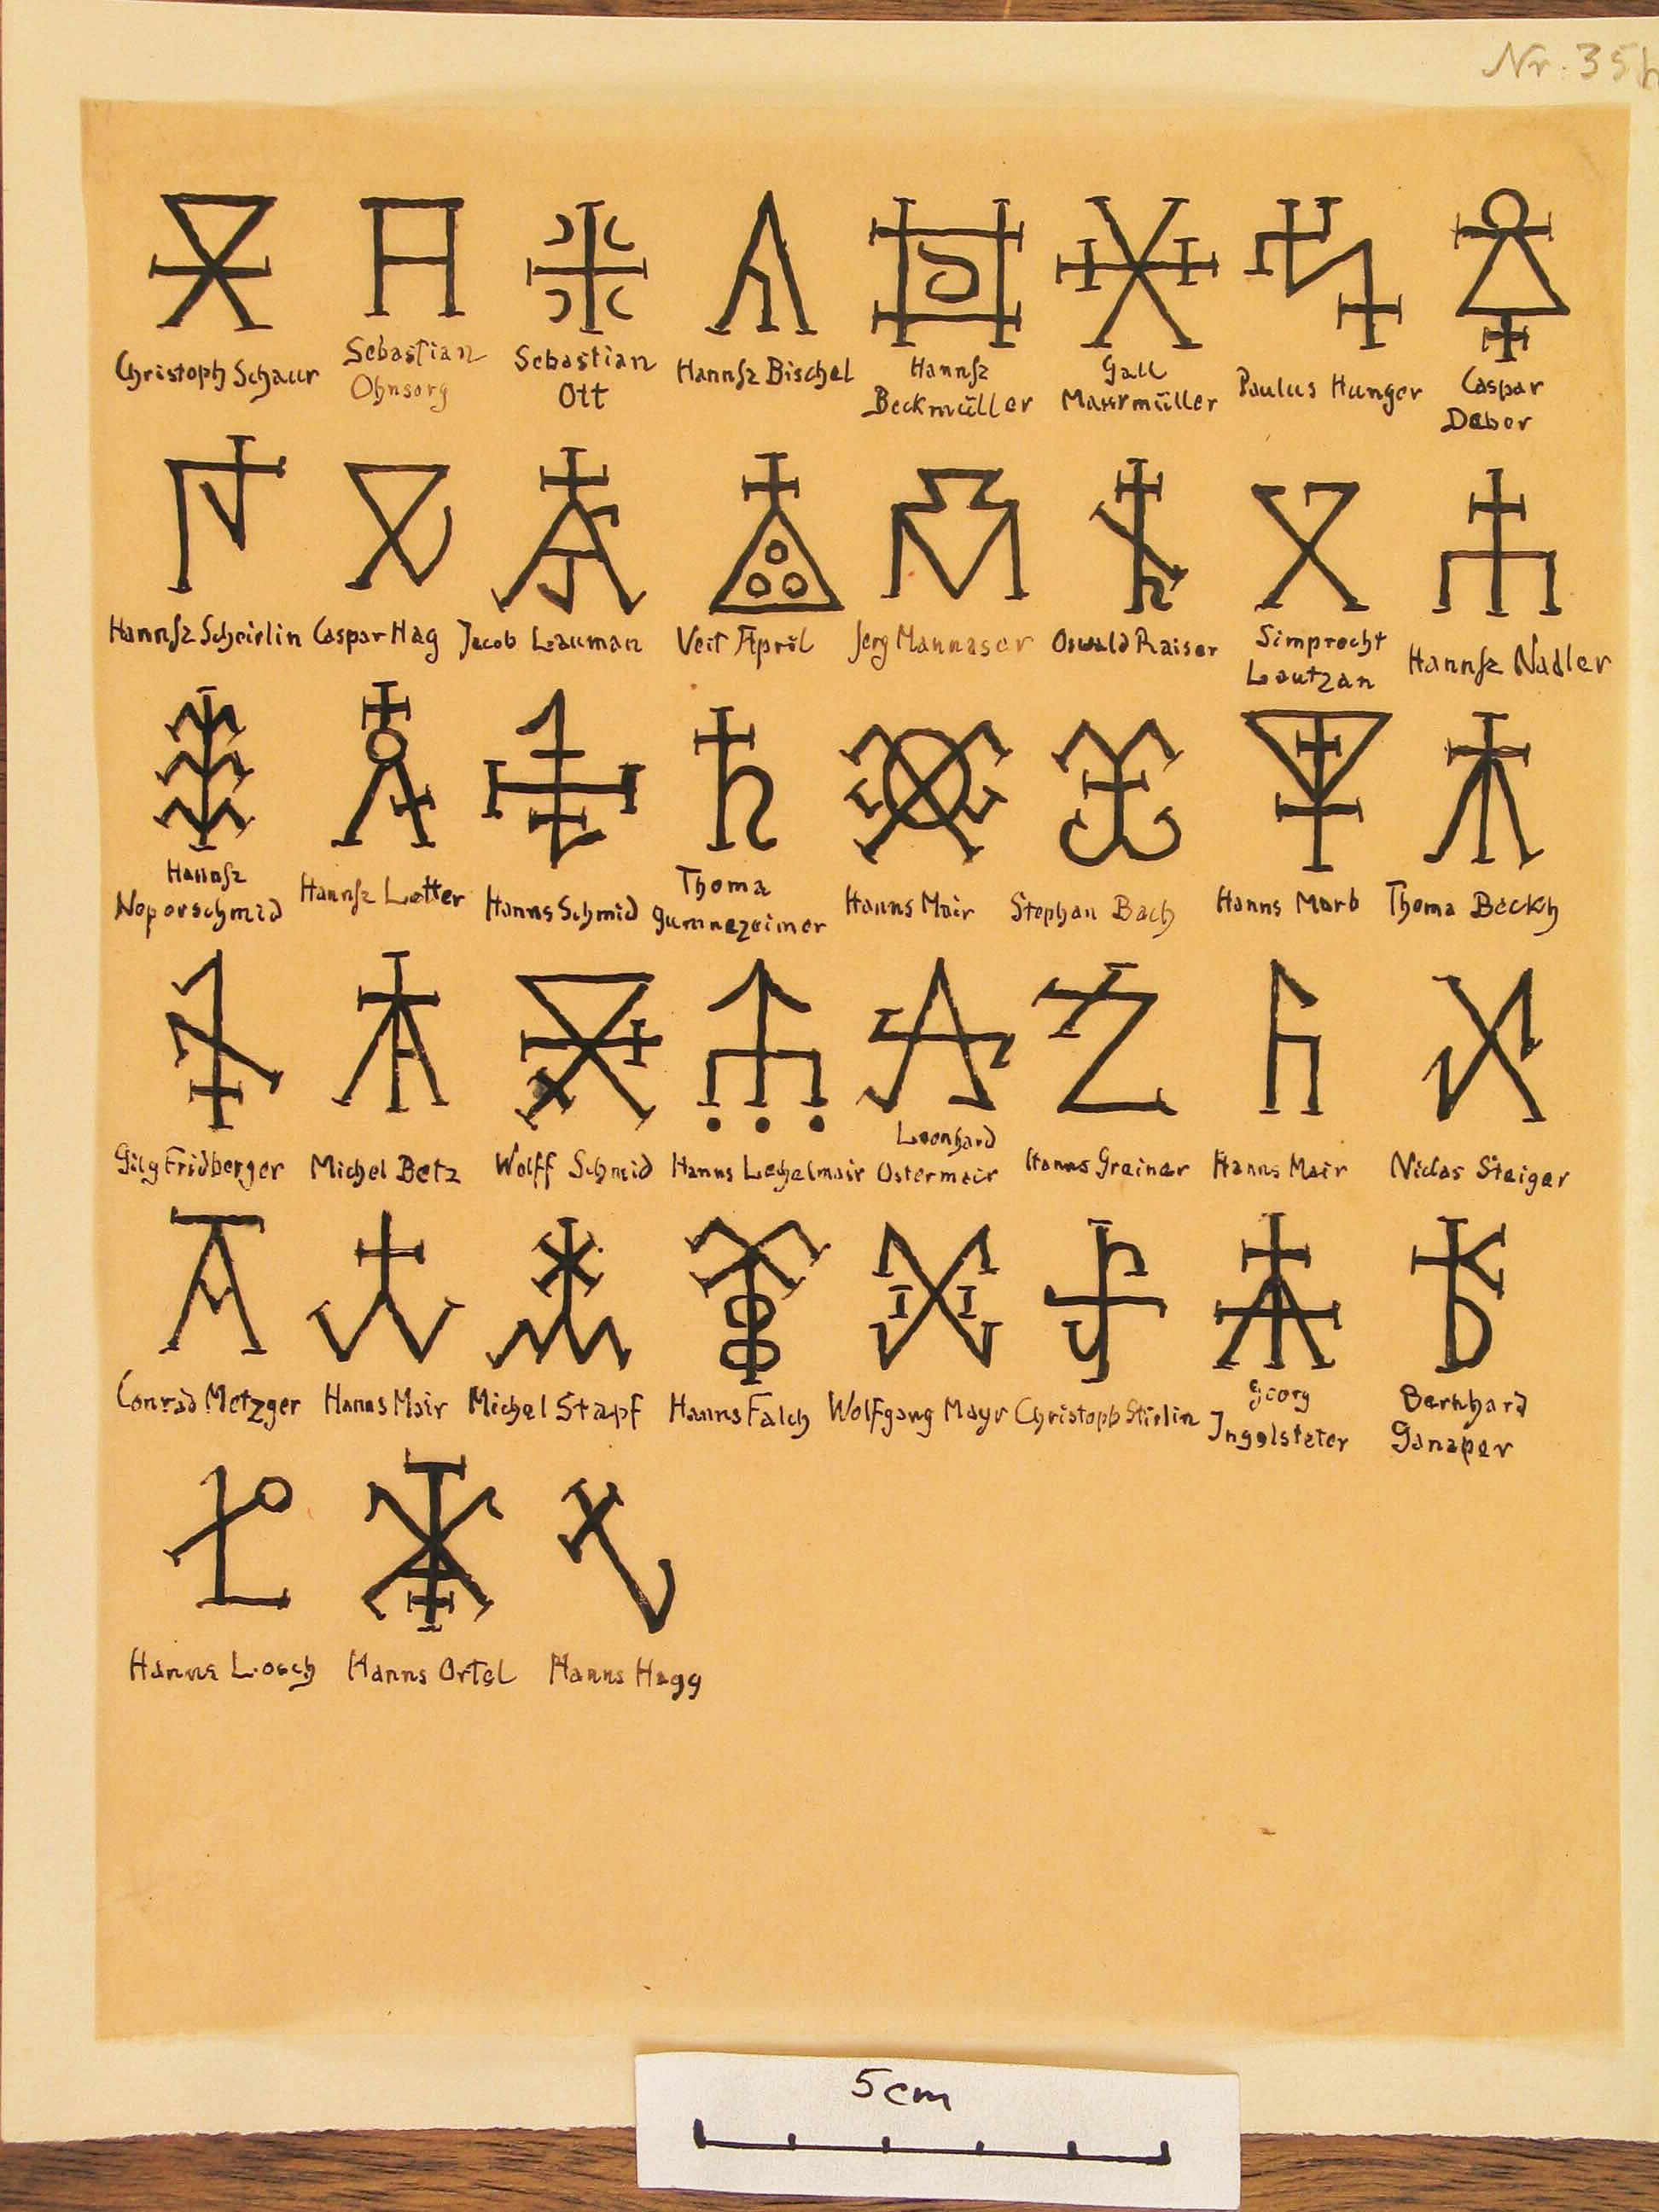 Nr. 35h
Christoph Schaur
Sebastian
Ohnsorg
Sebastian
Ott
Hannſz Bischel
Hannſz
Beckmüller
Gall
Maurmüller
Paulus Hunger
Caspar
Daber
Hannſz Scheirlin
Caspar Hag
Jacob Lauman
Veit April
Jerg Mannaser
Oswald Raiser
Simprecht
Lautzan
Hannſz Nadler
Hannſz
Noperschmid
Hannſz Lotter
Hanns Schmid
Thoma
Hanns Mair
Stephan Bach
Hanns Marb
Thoma Beckh
Gilg Fridberger
Michel Betz
Wolff Schmid
Hanns Lechelmair
Leonhard
Ostermair
Hanns Greiner
Hanns Mair
Niclas Staiger
Conrad Metzger
Hanns Mair
Michel Stapf
Hanns Falch
Wolfgang Mayr
Christoph Stirlin
Georg
Ingolsteter
Bernhard
Ganaper
Hanns Losch
Hanns Ortel
Hanns Hagg
5cm